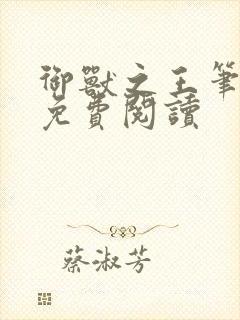 御獸之王筆
免費閱讀
蔡淑芳